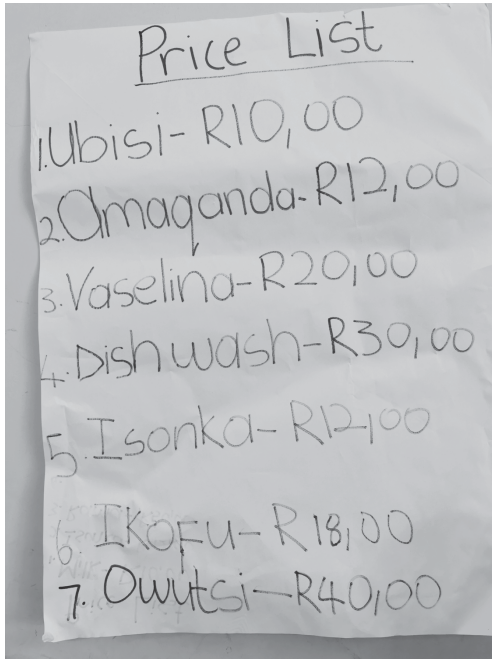 Price List
1.Ubisi- R10,00
2.Amaqanda-R12,00
3.Vaselina-R20,00
4.Dish wash-R30,00
5.Isonka-R12,00
6.Ikofu-R18,00
7.Owutsi-R40,00